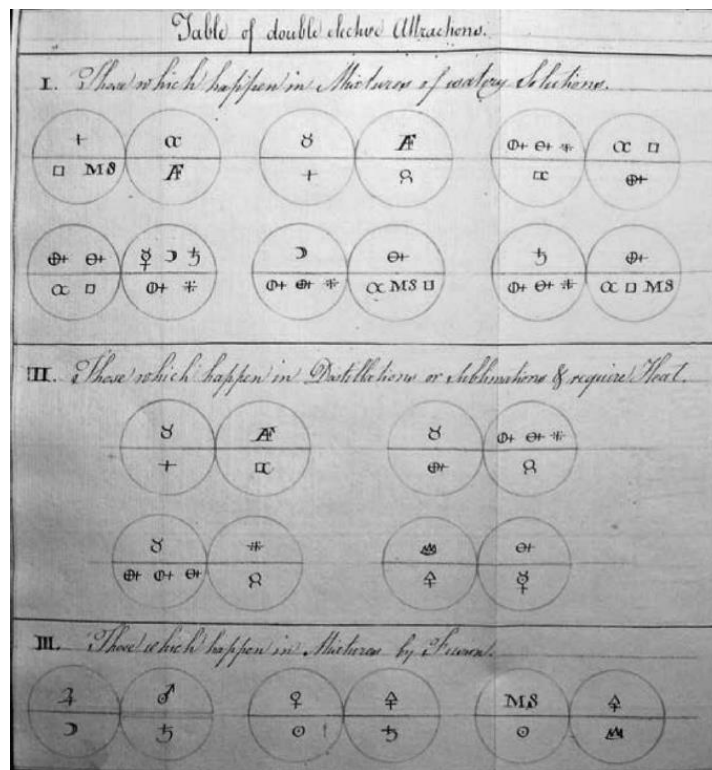 Table of double elective Attractions.
I. Those which happen in Mixtures of watery Solutions.
MS
MS
MS
II. Those which happen in Distillations or Sublimations & require Heat.
III. Those which happen in Mixtures by Fusion.
MS